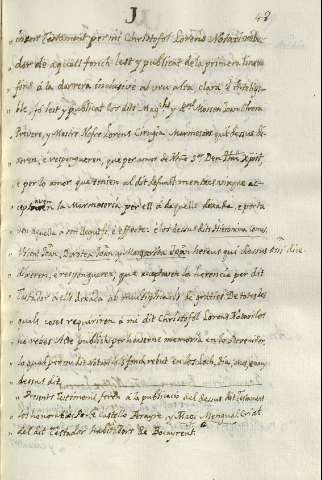 J 48
" insert Testament per mi Christofol Lorens Notari
" dar de aquell fonch lest y publicat de la primera linea
" fins à la darrera inclusive al veu alta, clara è intelligi-
" ble, fó lest y publicat los dits Mag.ch y Mossen Joan
" Prevere, y Mestre Nofre Lorens Cirugia Marmesors que dessus di-
" xeren, è respongueren, que per amor de Ntre S.r Deu
" è per lo amor que tenien al dit defunct mentres vixque ac-
" ceptaven la Marmesoria per ell à daquells dexada, è
" aquella à son è effecte: è los dessus dits Hieronima Gomes,
" Vicent Joan, Batiste Joan y Margarita Joan hereus qui dessus
" dixeren, è respongueren, que acceptaven la herencia per dit
" Testador à ells dexada ab de gracies De totes les
" quals coses requeriren à mi dit Christofol Lorens Notari los
" ne rebes Acte publich per haverne memoria en lo Devenidor
" lo qual per mi dit Notari los fonch rebut en los Loch, dia, mes, è any
" dessus dit.
" Presents Testimonis foren à la publicacio del dessus dit testament
" los honorables Castello Perayre, y Mengual Criat
" del dit Testador habitadors de Bocayrent.